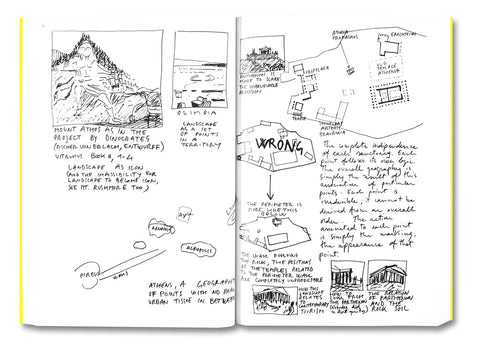 MOUNT ATHOS AS IN THE
PROJECT BY DINOCRATES
(FISCHER VON ERLACH, ENTWURFF)
VITRUVIUS BOOK II, 1-4
LANDSCAPE AS ICON
(AND THE IMPOSSIBILITY FOR
LANDSCAPE TO BECOME ICON,
SEE MT. RUSHMORE TOO)
OLIMPIA
LANDSCAPE
AS A SET
OF POINTS
IN A
TERRITORY
ACROPOLIS
PIREUS
ATHENS, A GEOGRAPHY
OF POINTS WITH NO REAL
URBAN TISSUE IN BETWEEN
PARTHENON IS
MADE TO SCALE
ATHENA
PROMACHOS
ERECHTEION
PROPYLAEA
OLD
TEMPLE
ATHENA
NIKE
TEMPLE
ARTEMIS
BRAURONIA
WRONG
THE PERIMETER IS
MORE LIKE THIS
BELOW
The complete independence
of each sanctuary. Each
point follows its own logic.
The overall geography is
simply the result of this
points. Each point is
irreducible; it cannot be
derived from an overall
order. The action
associated to each point
is simply the
the appearance of that
point.
THE WALL
THE POSITIONS
OF THE TEMPLES RELATED
TO THE PERIMETER WALL
ARE COMPLETELY UNPREDICTABLE
HOW THIS
LANDSCAPE
RELATES
TO
CONTEMPORARY
TOURISM
HOW TO
LOOK FROM
THE PARTHENON
THE RELATION
OF PARTHENON
AND THE
ROCK SOIL